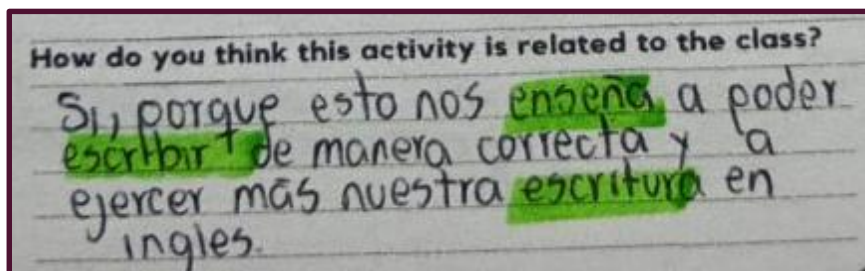 How do you think this activity is related to the class?
Si, porque esto nos enseña a poder
escribir de manera correcta y a
ejercer más nuestra escritura en
ingles.